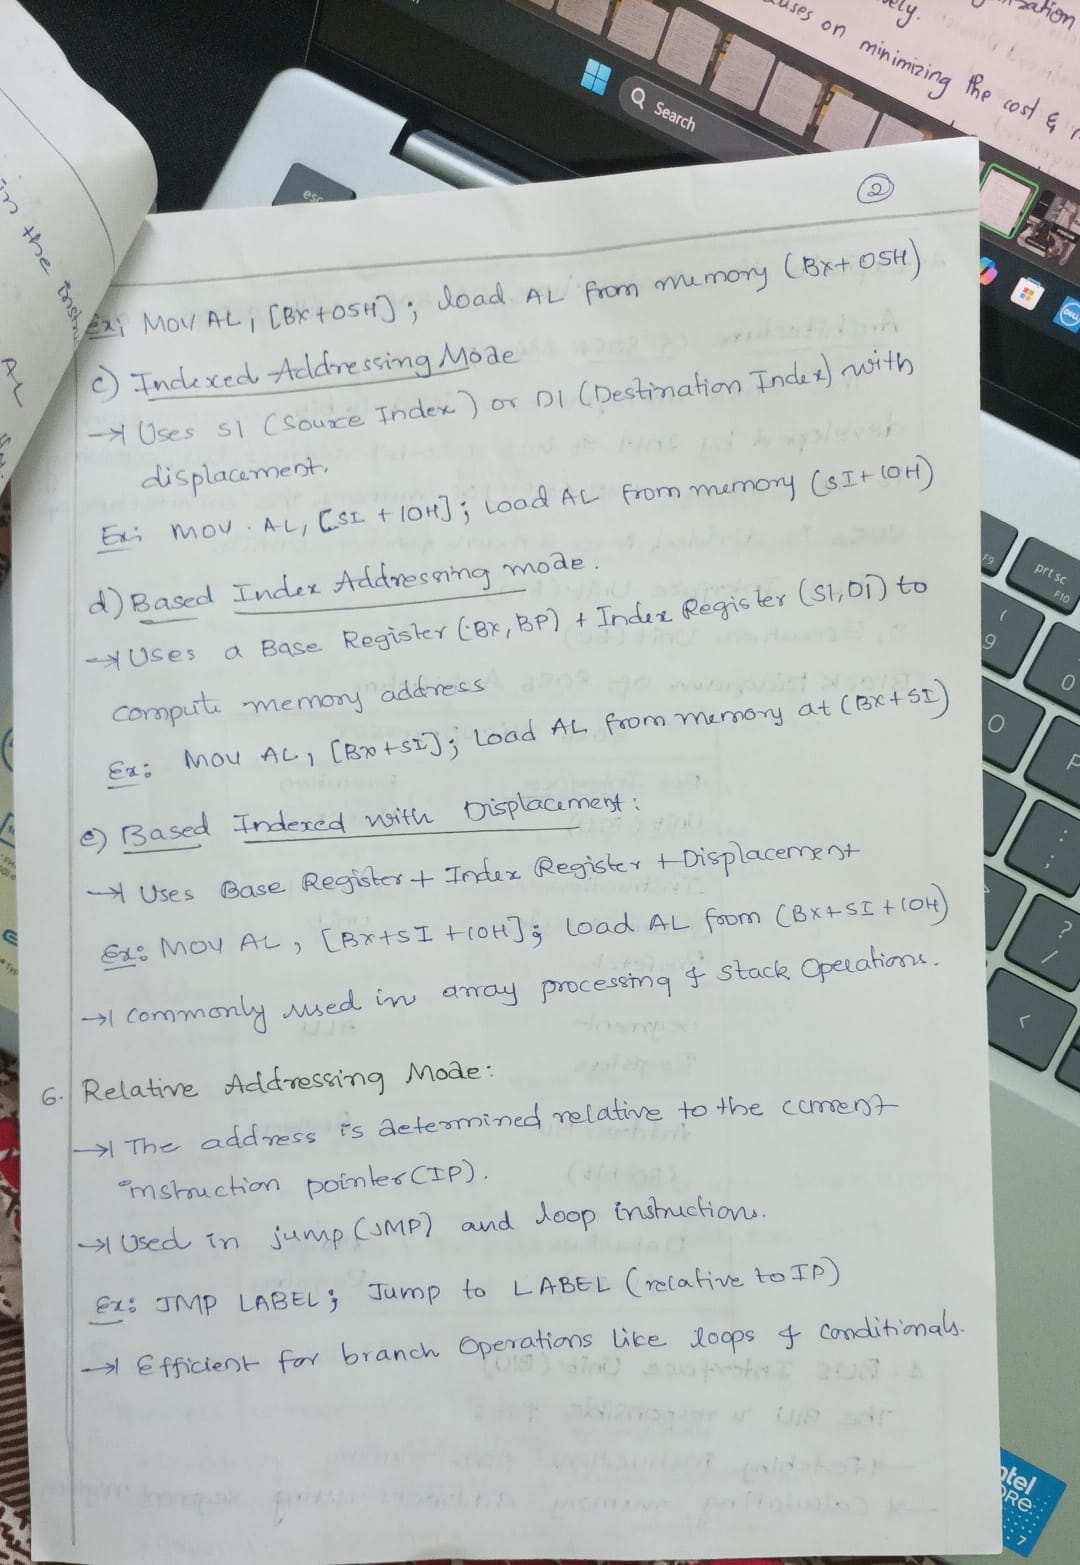 in the instru
uses on minimizing the cost &
Search
esc
2
Ex; MOV AL, [BX+05H]; load AL from memory (BX+05H)
c) Indexed Addressing Mode
→ Uses SI (Source Index) or DI (Destination Index) with
displacement.
Ex: MOV AL, [SI +10H]; Load AL from memory (SI+10H)
d) Based Index Addressing mode.
→ Uses a Base Register (BX, BP) + Index Register (SI, DI) to
compute memory address
Ex: MOV AL, [BX+SI]; Load AL from memory at (BX+SI)
e) Based Indexed with Displacement:
→ Uses Base Register + Index Register + Displacement
Ex: MOV AL, [BX+SI+10H]; Load AL from (BX+SI+10H)
→ Commonly used in array processing & stack Operations.
6. Relative Addressing Mode:
→ The address is determined relative to the current
instruction pointer (IP).
→ Used in jump (JMP) and loop instructions.
Ex: JMP LABEL; Jump to LABEL (relative to IP)
→ Efficient for branch Operations like loops & Conditionals.
F9
prt sc
F10
( 9
0
O
P
: ;
? /
<
DELL
intel
CORE
i7